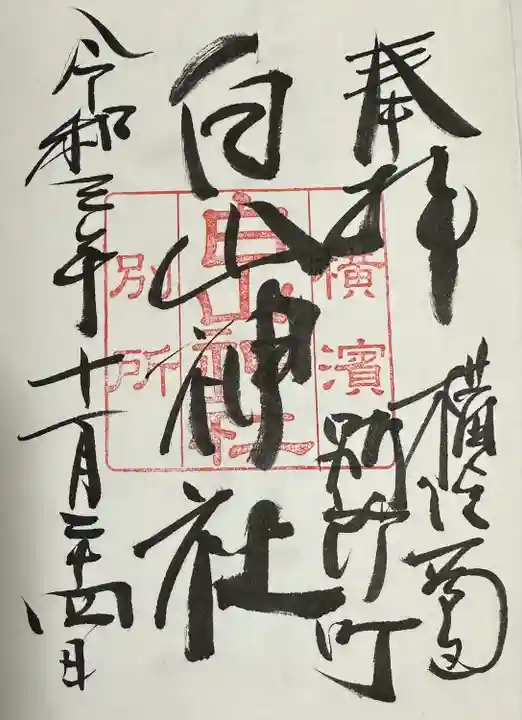 奉拝
横浜南
別所町
白山神社
令和三年十一月二十四日
横濱
白山神社
別所